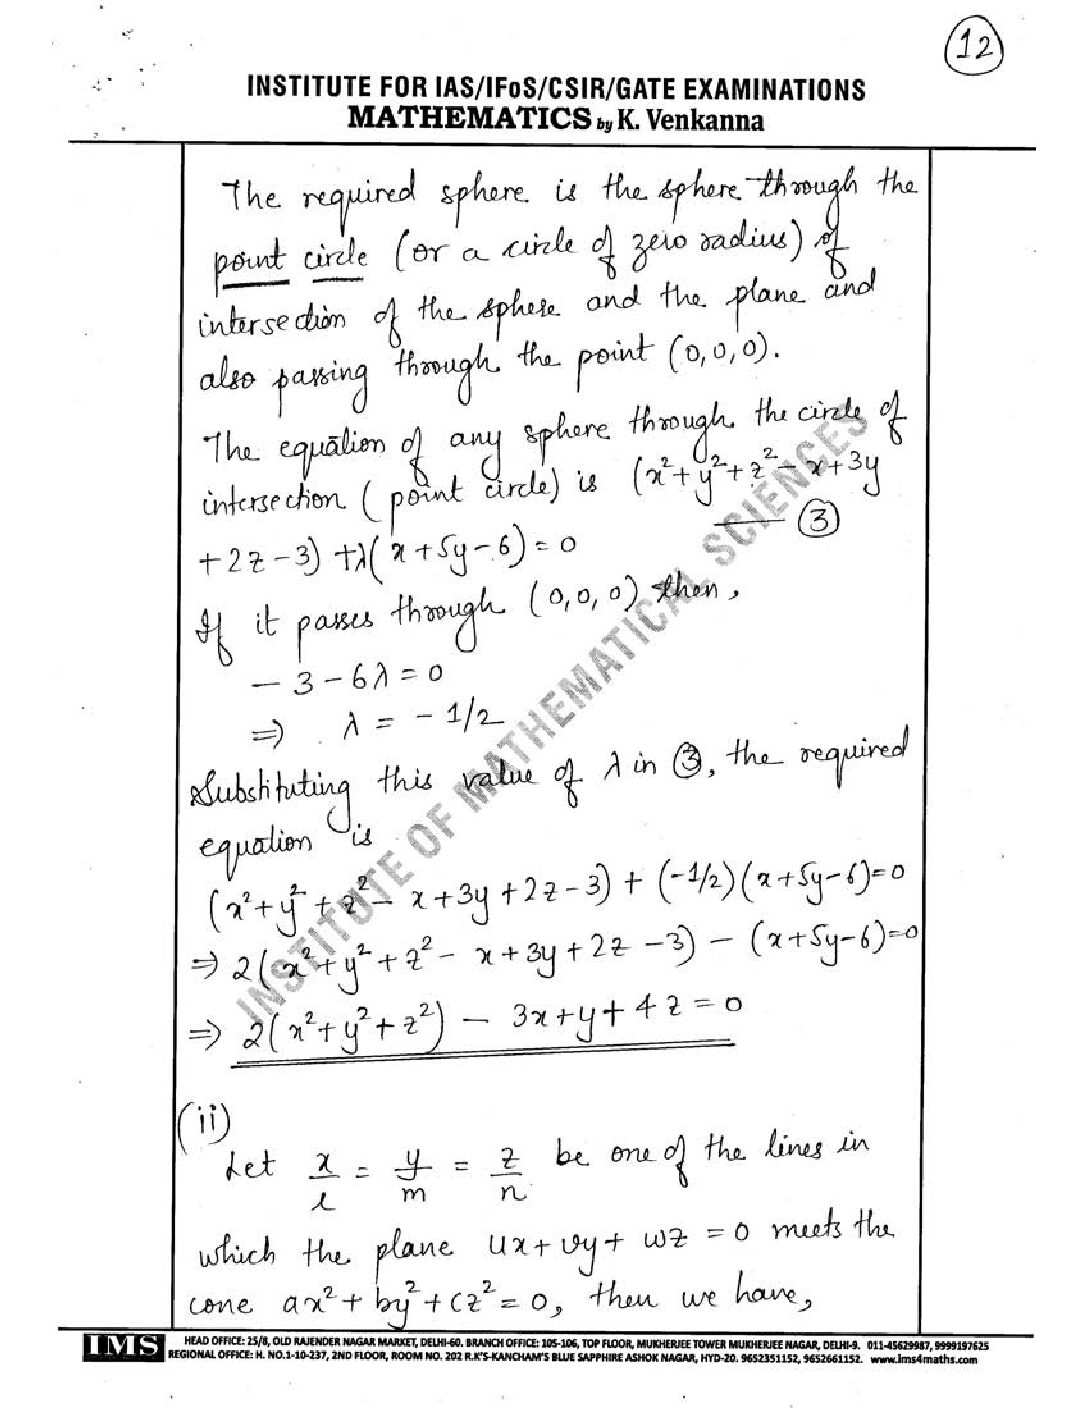 12
INSTITUTE FOR IAS/IFoS/CSIR/GATE EXAMINATIONS
MATHEMATICS by K. Venkanna
The required sphere is the sphere through the
point circle (or a circle of zero radius) of
intersection of the sphere and the plane and
also passing through the point (0,0,0).
The equation of any sphere through the circle of
intersection (point circle) is (x²+y²+z²-x+3y
+2z-3)+λ(x+5y-6)=0 — ③
If it passes through (0,0,0) then,
-3-6λ=0
⇒ λ = -1/2
Substituting this value of λ in ③, the required
equation is
(x²+y²+z²-x+3y+2z-3)+(-1/2)(x+5y-6)=0
⇒ 2(x²+y²+z²-x+3y+2z-3)-(x+5y-6)=0
⇒ 2(x²+y²+z²)-3x+y+4z=0
(ii)
Let x/l = y/m = z/n be one of the lines in
which the plane ux+vy+wz=0 meets the
cone ax²+by²+cz²=0, then we have,
INSTITUTE OF MATHEMATICAL SCIENCES
IMS
HEAD OFFICE: 25/8, OLD RAJENDER NAGAR MARKET, DELHI-60. BRANCH OFFICE: 105-106, TOP FLOOR, MUKHERJEE TOWER MUKHERJEE NAGAR, DELHI-9. 011-45629987, 9999197625
REGIONAL OFFICE: H. NO.1-10-237, 2ND FLOOR, ROOM NO. 202 R.K'S-KANCHAM'S BLUE SAPPHIRE ASHOK NAGAR, HYD-20. 9652351152, 9652661152. www.ims4maths.com